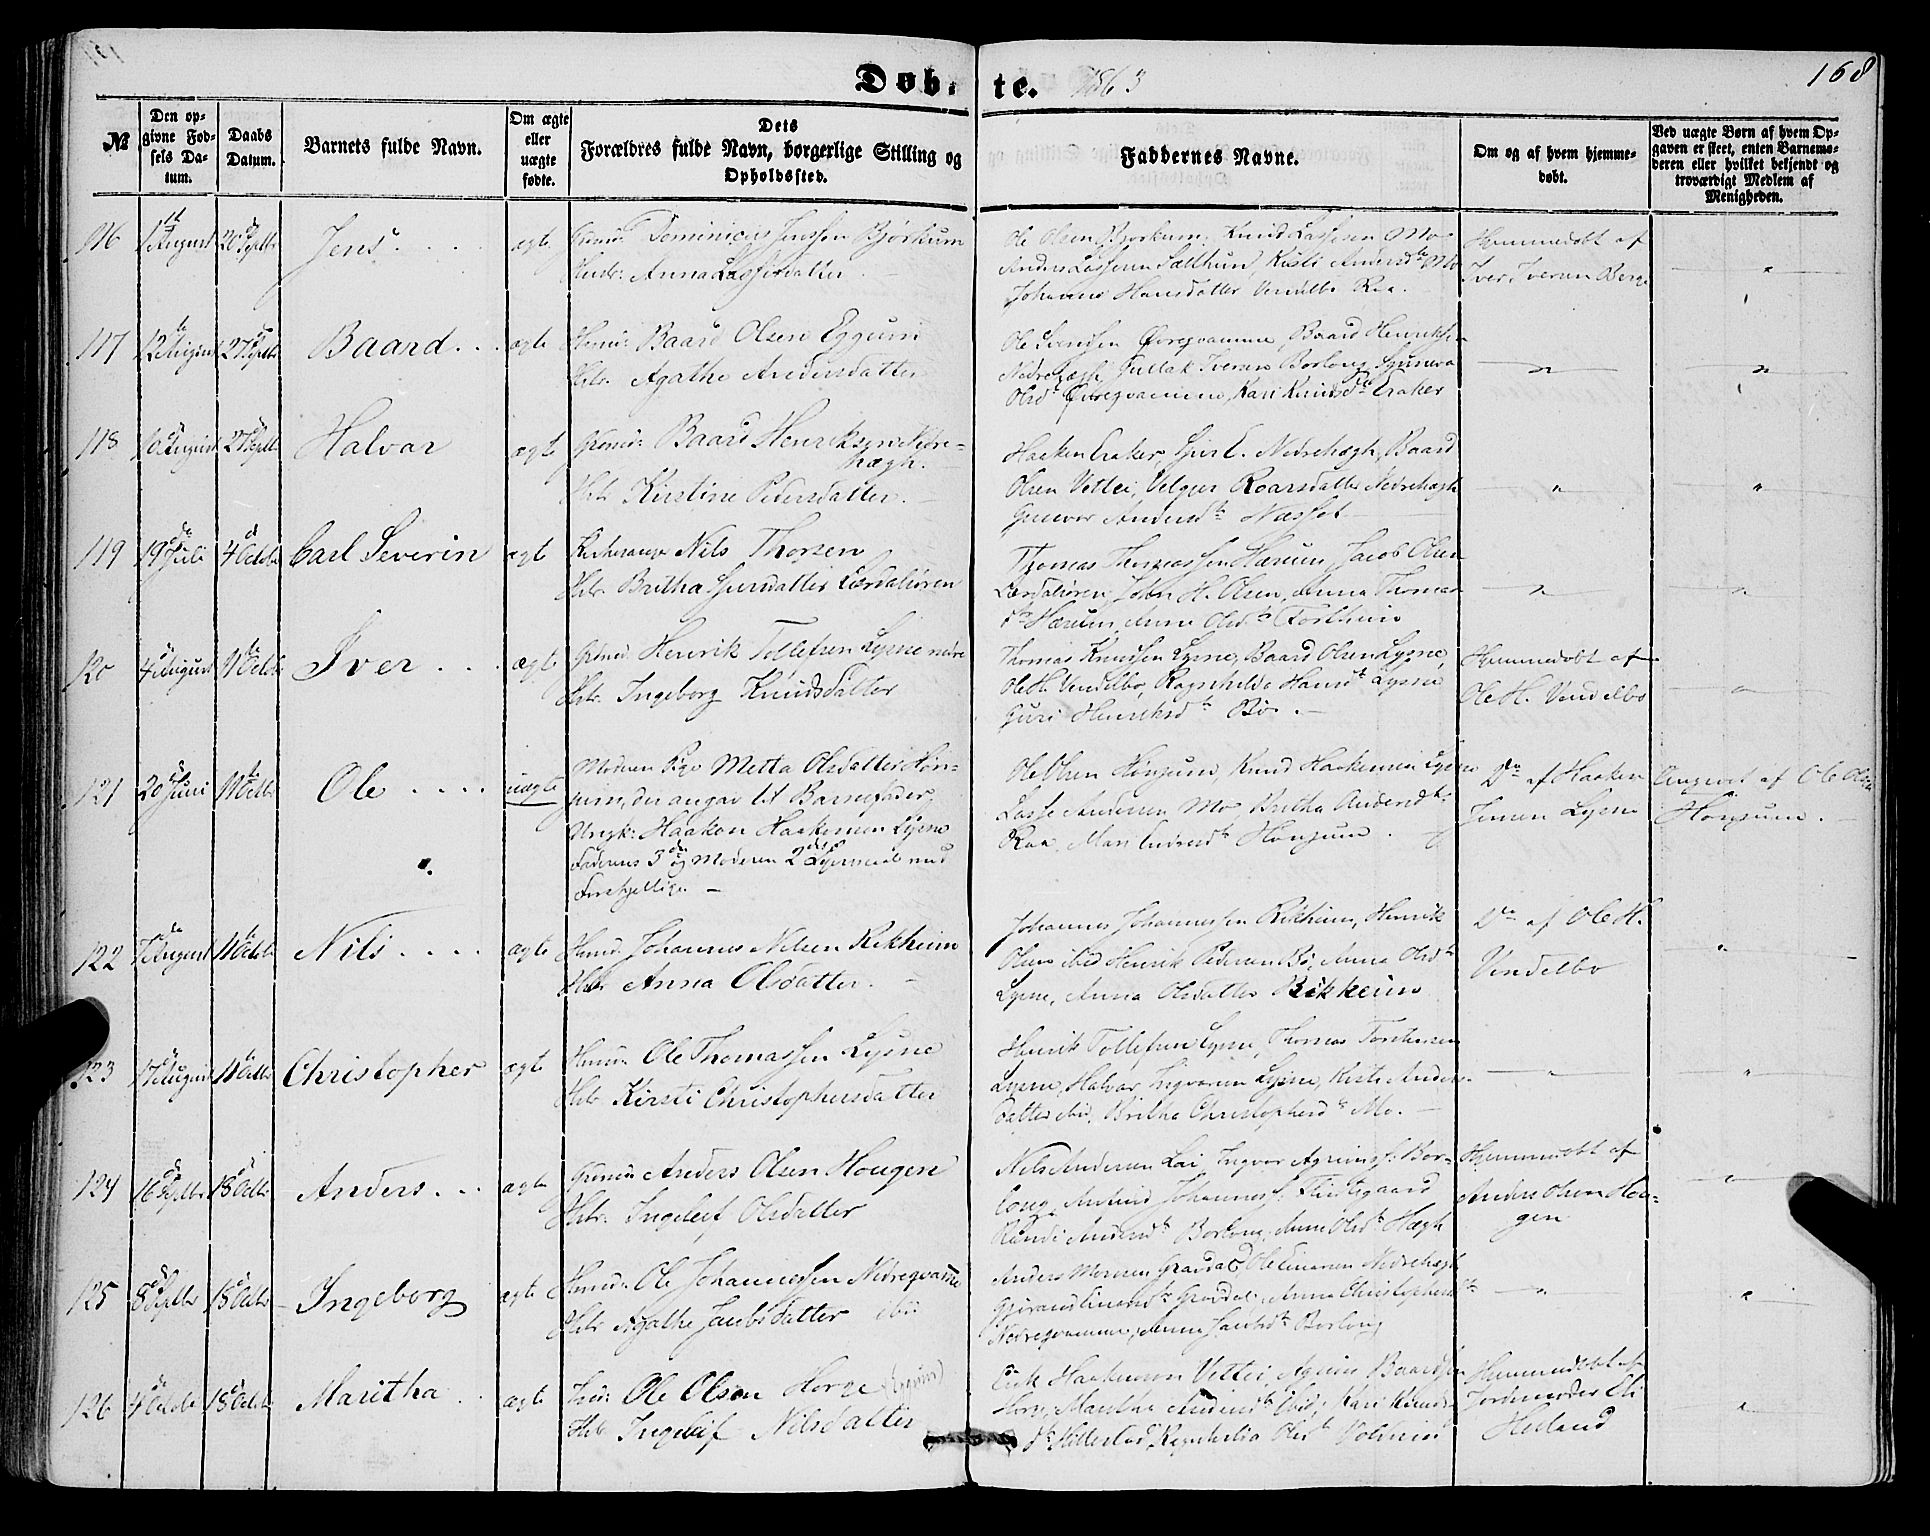 Døbte. 1863
168
№
Den op-
givne Fød-
sels Da-
tum.
Daabs
Datum.
Barnets fulde Navn.
Om ægte
eller
uægte
fødte.
Dets
Forældres fulde Navn, borgerlige Stilling og
Opholdssted.
Faddernes Navne.
Om og af hvem hjemme-
døbt.
Ved uægte Børn af hvem Op-
gaven er skeet, enten Barnemo-
deren eller hvilket bekjendt og
troværdigt Medlem af
Menigheden.
116 Jens ægte Dominicus Jenssen Bjørkum
Anna Lassesdatter
Ole Olsen Bjorkum, Knud Lassesen Mo
Anders Lassesen Sælthun, Kirsti Andersdtr Mo
Johanne Hansdatter Vendelbo Raa.
Hjemmedøbt af
Iver Iversen Berge
117 12 August 27 Septbr Baard ægte Baard Olsen Eggum
Hstr. Agathe Andersdatter
Ole Svendsen Øvregvamme, Baard Henriks.
Nedrehægh, Gullak Iversen Borlong, Synneva
Olsdr Øvregvamme, Kari Knudsdtr Craker
118 10 August 27 Septbr Halvar ægte Baard Henriksen Nedre-
hægh.
Hstr Kirstine Pedersdatter.
Haaken Craker, Sjur E. Nedrehægh, Baard
Olsen Vettei, Velgun Roarsdatter Nedrehægh
Gunvor Andersdtr Næsset
119 19 Juli 4 Octobr Carl Severin ægte Nils Thorsen
Hstr. Britha Sjursdatter Lærdalsøren
Thomas Thomassen Hærum, Jacob Olsen
Lærdalsøren, John H. Olsen, Anna Thomas-
dtr Hærum, Anna Olsdtr
120 4 August 11 Octobr Iver ægte Henrik Tollefsen Lysne nedre
Hstr. Ingeborg Knudsdatter
Thomas Knudsen Lysne, Baard Olsen Lysne,
Ole H. Vendelbo, Ragnhilda Hansdt Lysne
Guri Henriksdtr Bø.
Hjemmedøbt af
Ole H. Vendelbo
121 20 Juni 11 Octbr Ole uægte Moderen Pige Metta Olsdatter Høn-
jum, der angav til Barnefader
Ungk: Haakon Haakensen Lysne
Faderens 3de og Moderen 2det Leiermaal med
Forskjellige.
Ole Olsen Hønjum, Knud Haakensen Lysne
Lasse Andersen Mo, Britha Andersdtr
Raa, Mari Hønjum.
Do af Haaken
Jensen Lysne
Angivet af Ole Olsen
Hønjum.
122 7 August 11 Octobr Nils ægte Johannes Nilsen Rikheim
Hstr Anna Olsdatter.
Johannes Johannessen Rikheim, Henrik
Olsen ibid Henrik Pedersen Bø, Anna Olsdtr
Lysne, Anna Olsdatter Rikheim
Do af Ole H.
Vendelbo
123 17 August 11 Octbr Christopher ægte Ole Thomassen Lysne
Hstr Kirsti Christophersdatter
Henrik Tollefsen Lysne, Thomas
Lysne, Halvar Ingvarsen Lysne, Kirsti Anders-
datter ibid, Britha Christophersdtr Mo.
124 16 Septbr 18 Octbr Anders ægte Anders Olsen Hougen
Hstr. Ingeleif Olsdatter
Nils Andersen Lai, Ingvar Agrims. Bor-
long, Johannes.
Randi Andersdtr Borlong, Anne Olsdtr Hægh
Hjemmedøbt af
Anders Olsen Hou-
gen
125 8 Septbr 18 Octbr Ingeborg ægte Ole Johannessen Nedregvamme
Hstr Agathe Jacobsdatter ibid
Anders Monsen Graudal, Ole Einarsen Nedrehægh
Graudal, Anna Christophersdtr
Nedregvamme, Anna Jacobsdtr Borlong
126 4 Octobr 18 Octobr Maritha ægte Ole Olsen Horge (Eggum)
Hstr Ingeleif Nilsdatter
Erik Haakensen Vettei, Baardsen
Horge, Maritha Andersdtr ibid, Kari Knuds-
dtr Hillestad, Ragnhilda Olsdtr
Hjemmedøbt af
Jordemoder Eli
Helland